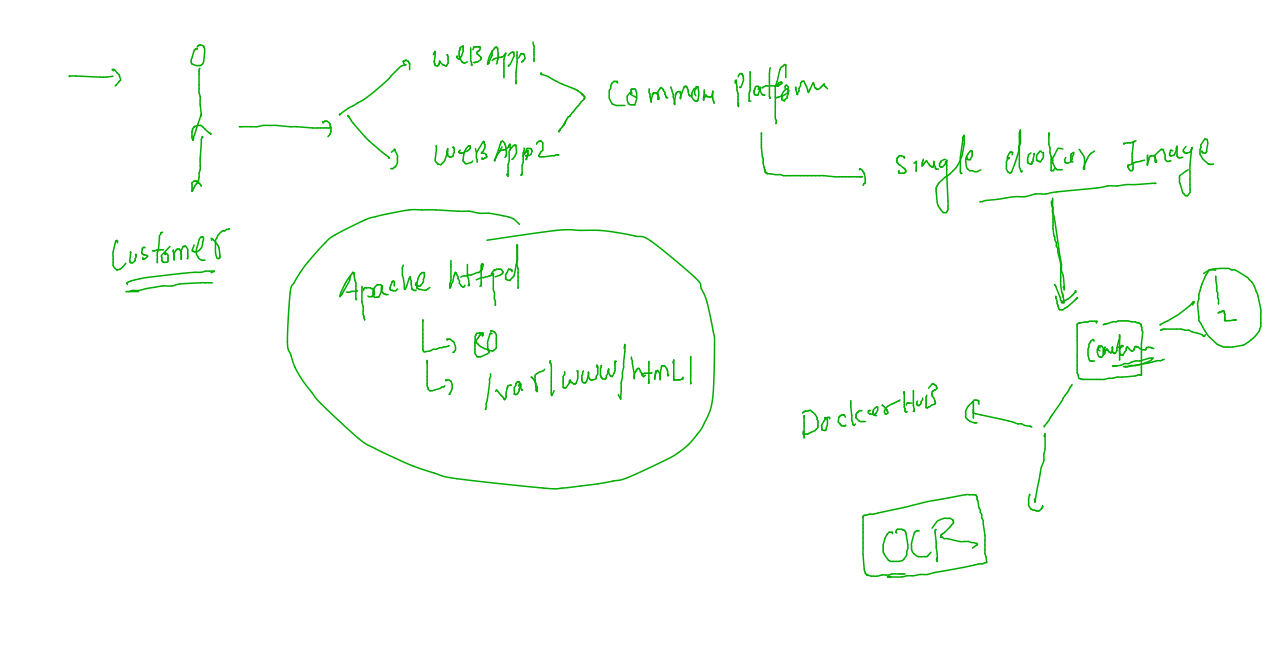 WEBApp1
WEBApp2
Common Platform
Single docker Image
Customer
Apache httpd
80
/var/www/html
1
2
DockerHub
OCR